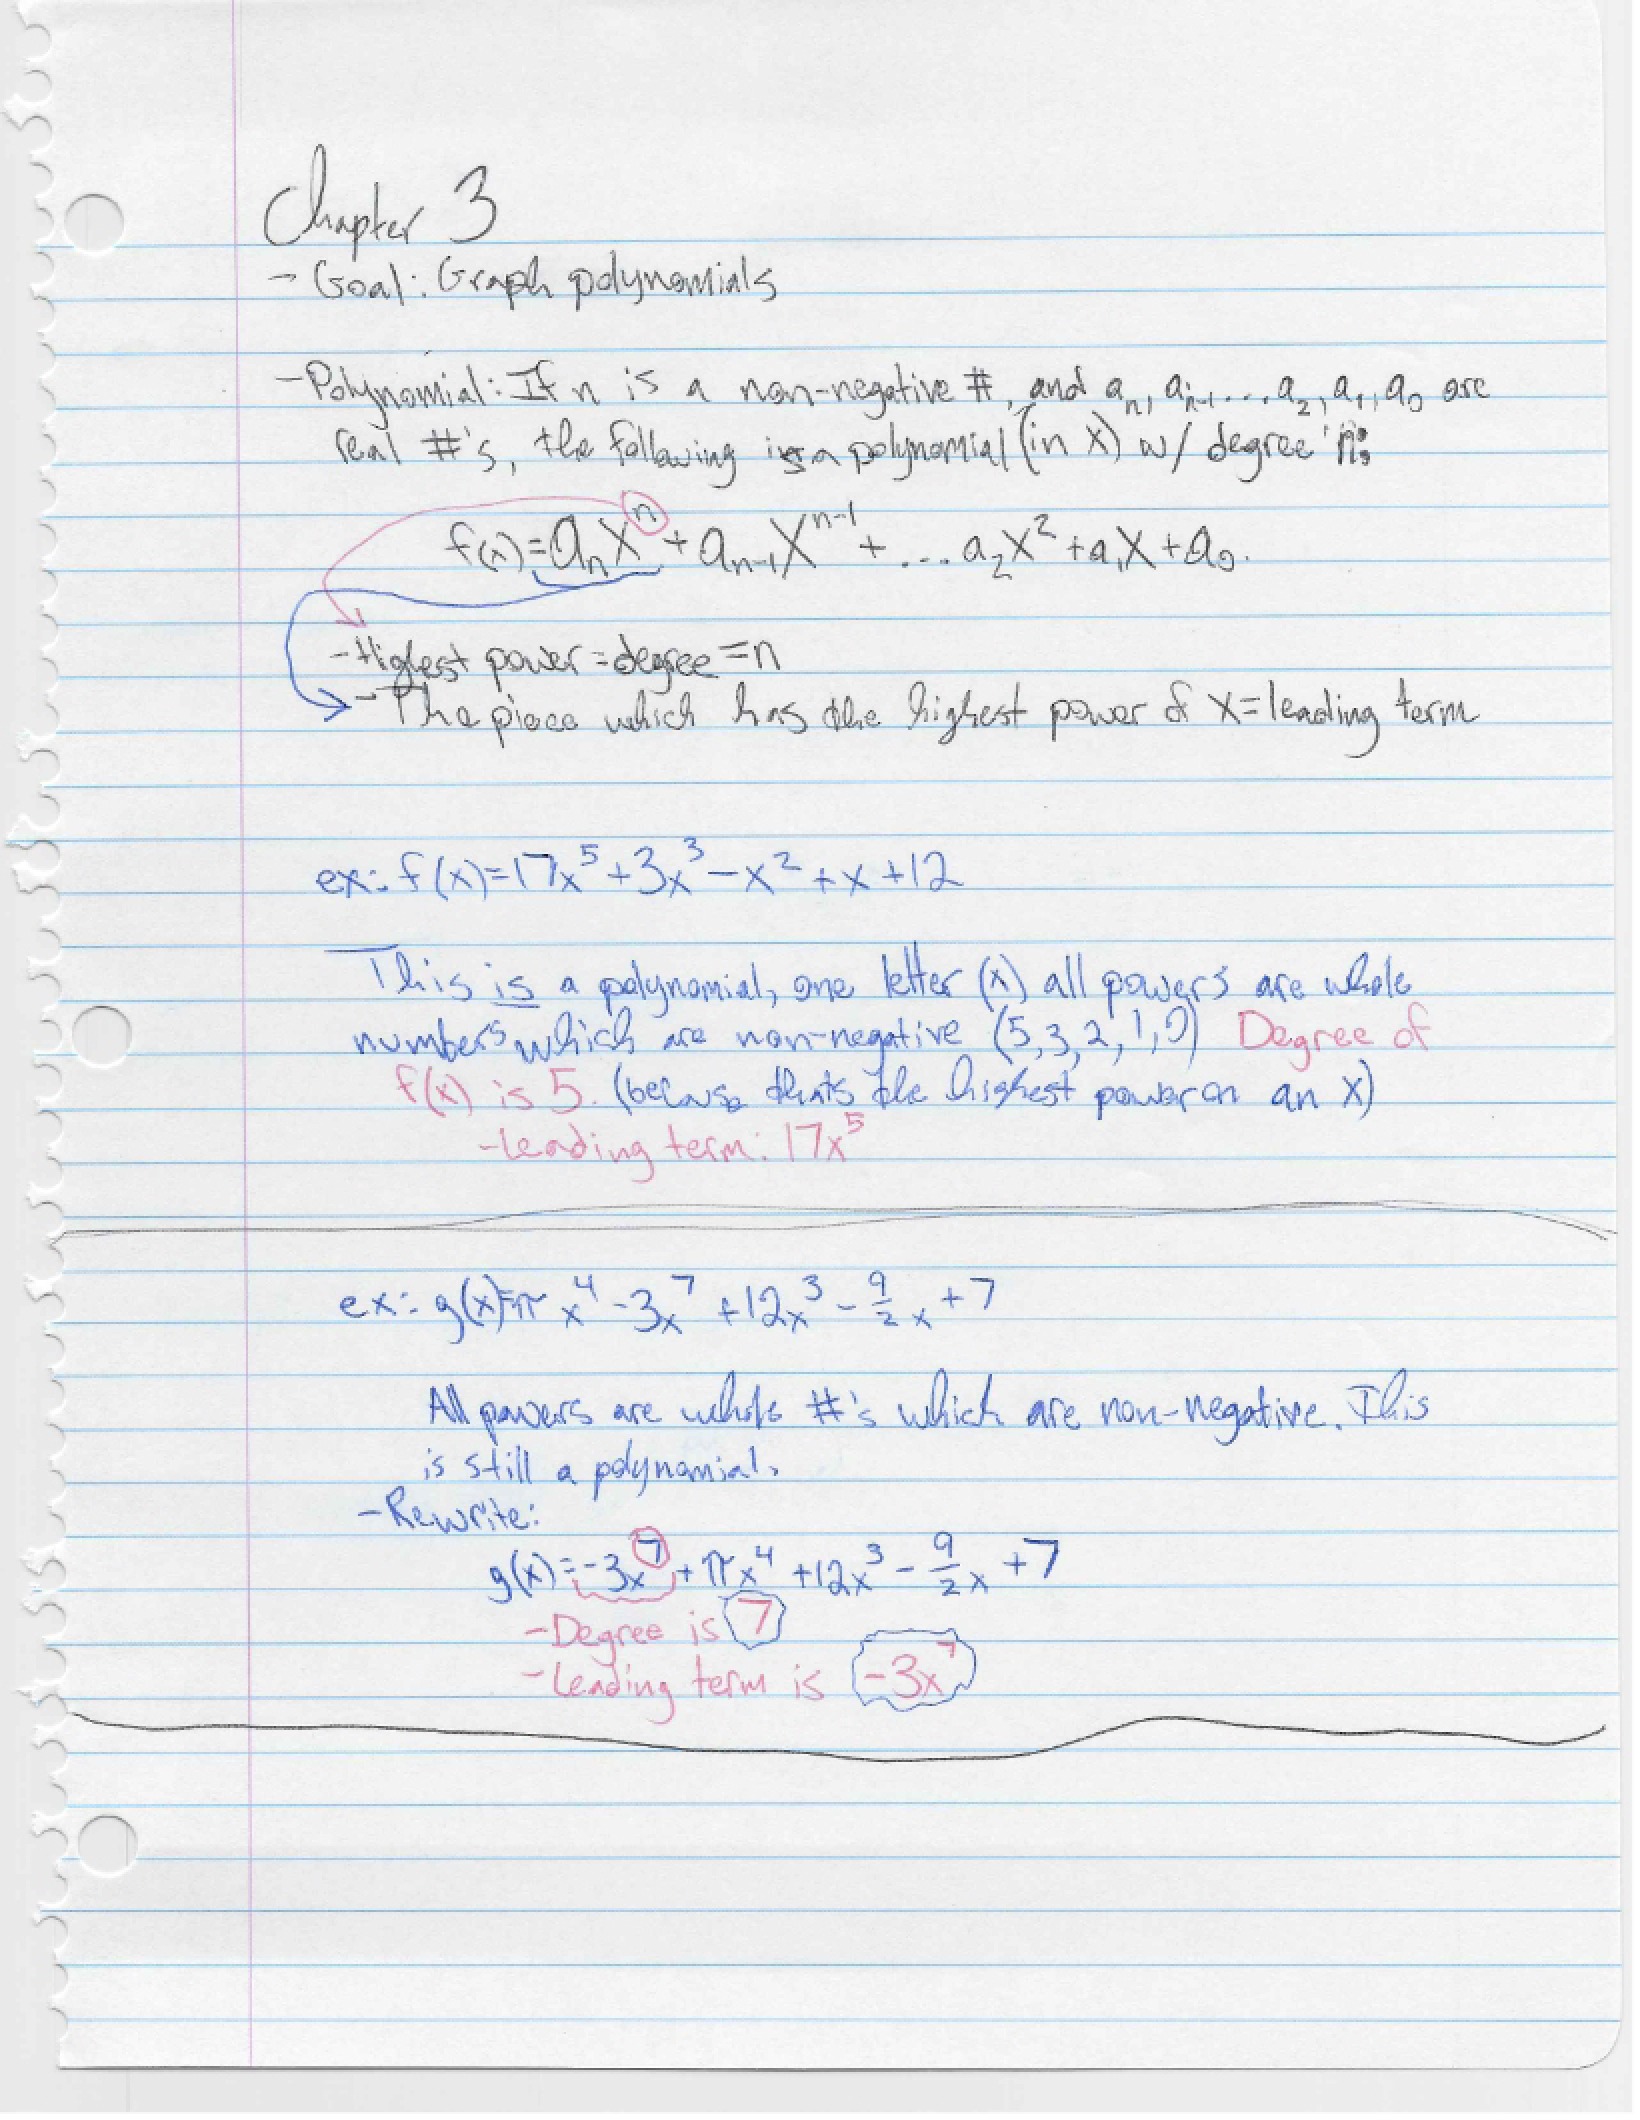 Chapter 3
- Goal: Graph polynomials
- Polynomial: If n is a non-negative #, and aₙ, aₙ₋₁ .... a₂, a₁, a₀ are
real #'s, the following is a polynomial (in x) w/ degree n:
f(x) = aₙxⁿ + aₙ₋₁xⁿ⁻¹ + ... a₂x² + a₁x + a₀.
- Highest power = degree = n
- The piece which has the highest power of x = leading term
ex: f(x) = 17x⁵ + 3x³ - x² + x + 12
This is a polynomial, one letter (x) all powers are whole
numbers which are non-negative (5,3,2,1,0) Degree of
f(x) is 5. (because thats the highest power on an x)
- Leading term: 17x⁵
ex: g(x) = π x⁴ - 3x⁷ + 12x³ - 9/2 x + 7
All powers are whole #'s which are non-negative. This
is still a polynomial.
- Rewrite:
g(x) = -3x⁷ + πx⁴ + 12x³ - 9/2 x + 7
- Degree is 7
- Leading term is -3x⁷